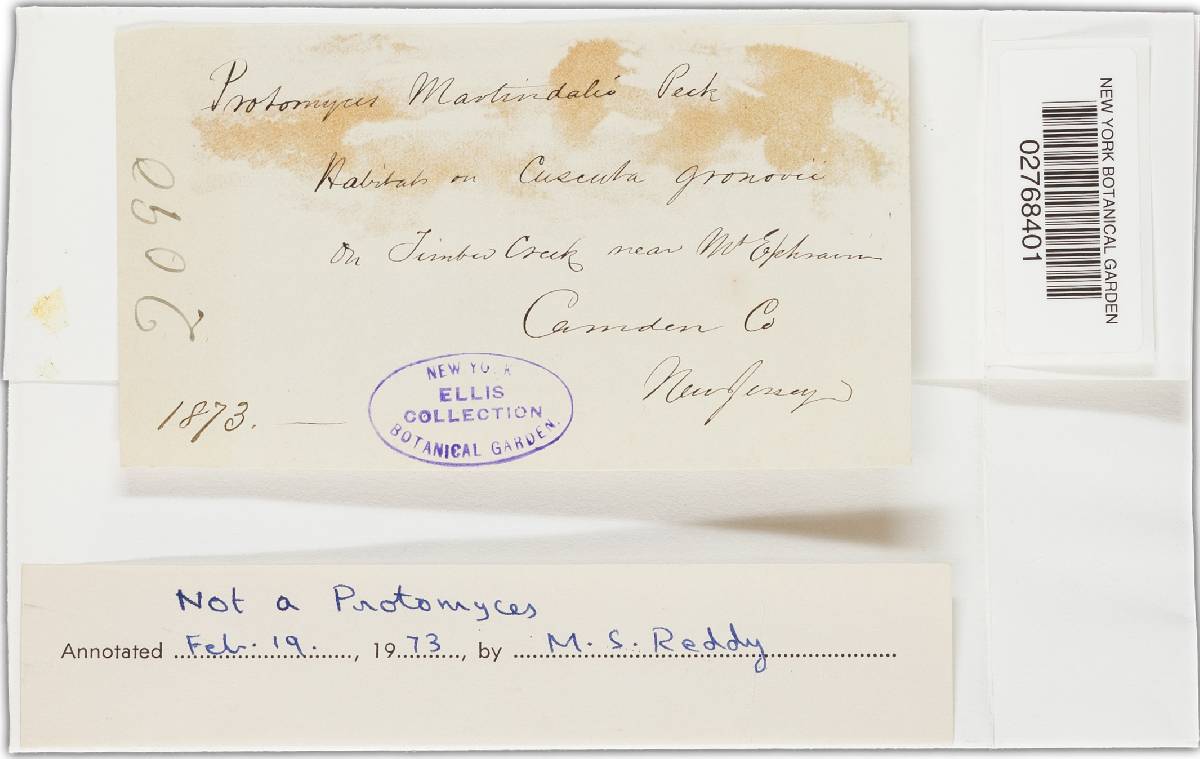 Protomyces Martindalii Peck
Habitat on Cuscuta gronovii
On Timber Creek near Mt Ephraim
Camden Co
New Jersey
1873. —
2090
NEW YORK
ELLIS
COLLECTION
BOTANICAL GARDEN.
NEW YORK BOTANICAL GARDEN
02768401
Not a Protomyces
Annotated Feb. 19., 1973, by M. S. Reddy